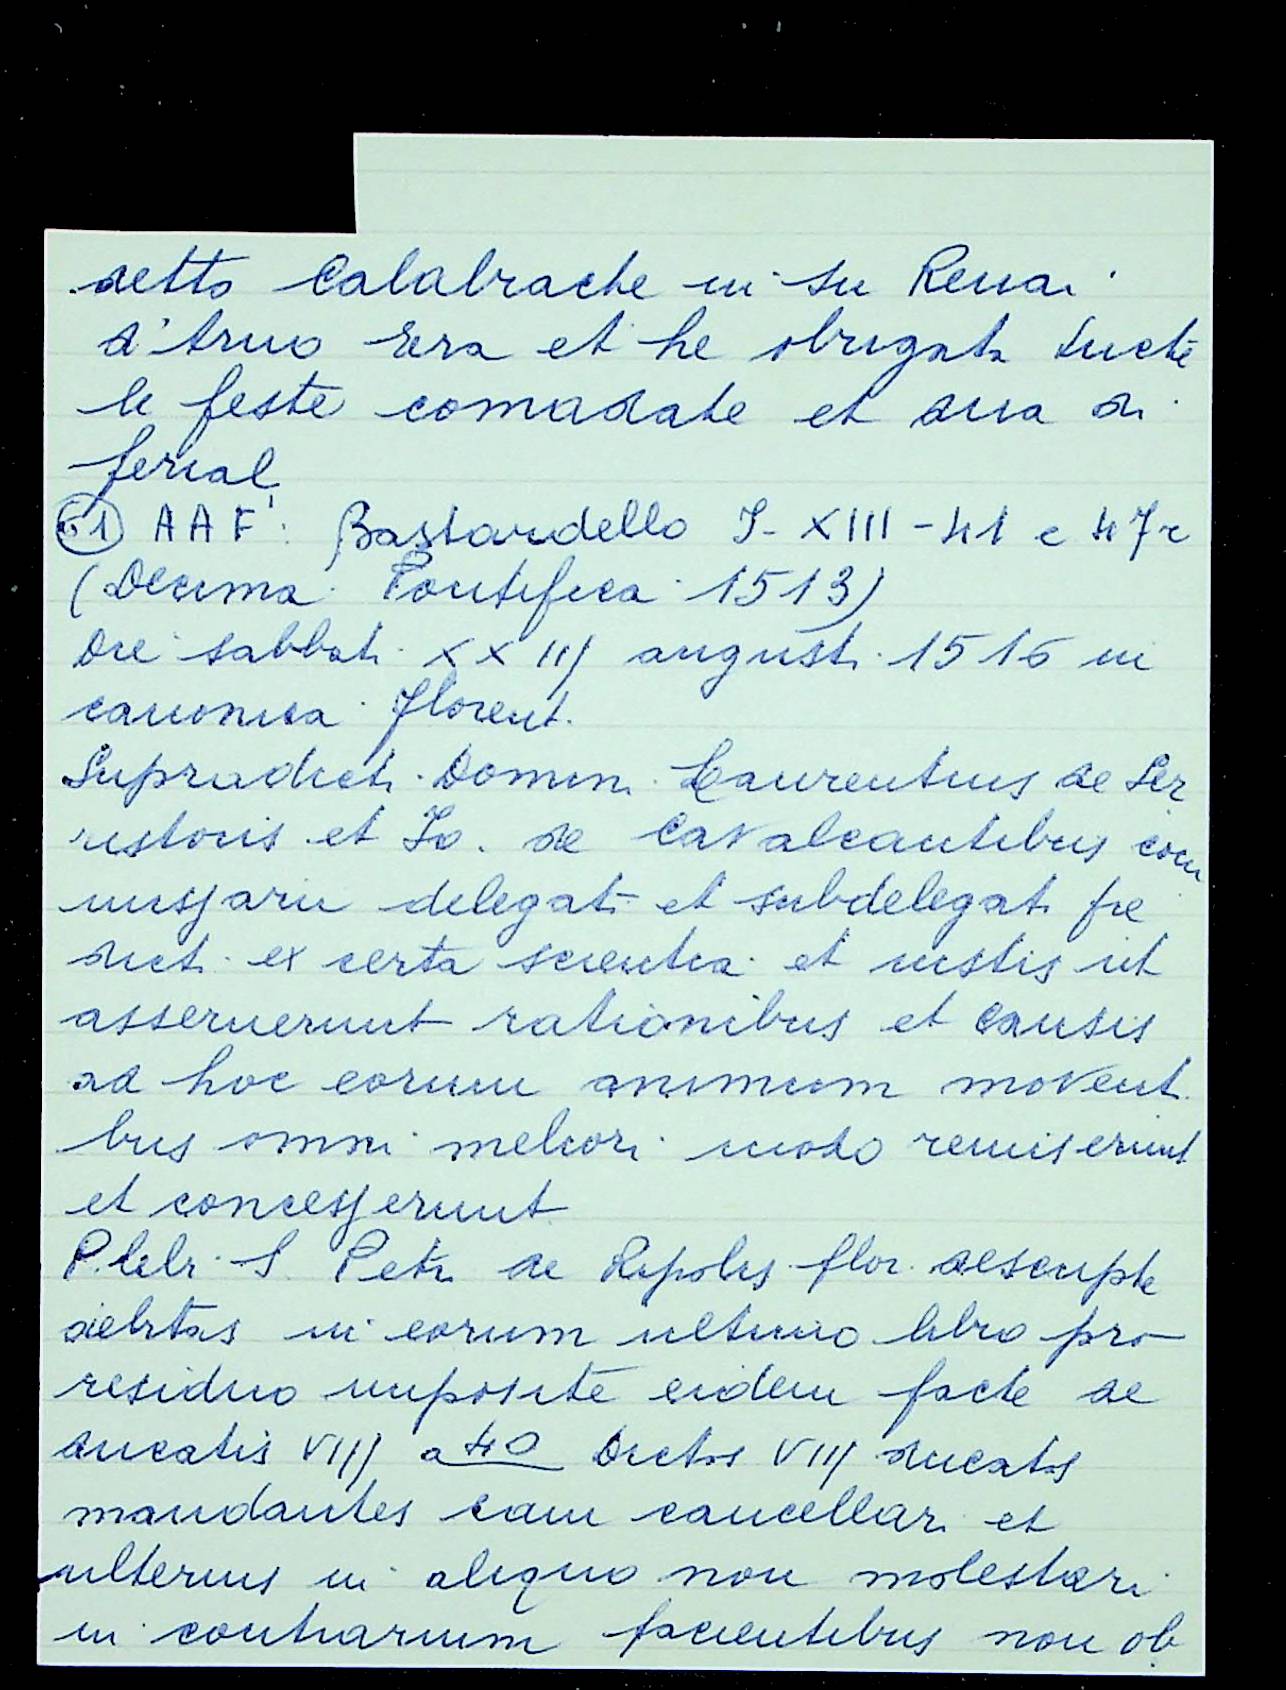 detto Calabrache in su Renai
d'Arno Era et he obrigata tucte
le feste comadate et dua di
ferial
61) AAF: Bastardello I-XIII-41 c 47r
(Decima Pontifica 1513)
Die sabbati XXIIJ augusti 1516 in
canonica florent.
Supradicti Domini Laurentius de Ser
ristoris et Jo. de Cavalcantibus com
missarii delegati et subdelegati pre
dicti ex certa scientia et iustis ut
asseruerunt rationibus et causis
ad hoc eorum animum movent
bus omni meliori modo remiserunt
et concesserunt
Plebi S. Petri de Ripolis flor. descripte
debitas in eorum ultimo libro pro
residuo imposite eidem facte de
ducatis VIIJ a 40 Dictos VIIJ ducatos
mandantes eam cancellari et
ulterius in aliquo non molestari
in contrarium facientibus non ob